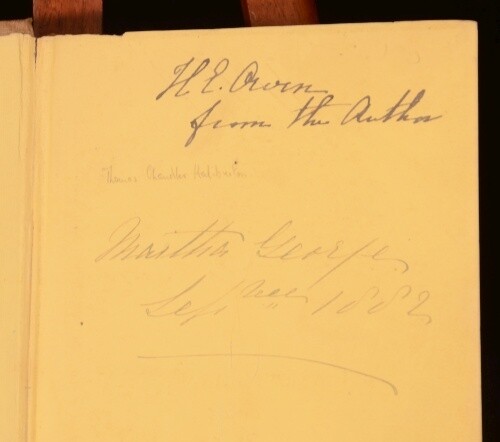 H. E. Owen
from the Author
Thomas Chandler Haliburton
Martha George
1882